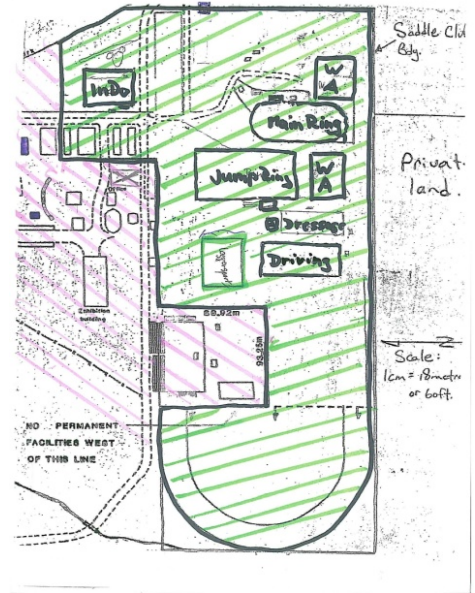 Saddle Club
Bdg.
InDo
W
A
Main Ring
Private
land.
Jump Ring
W
A
Office
Dressage
Driving
Exhibition
building
69.92m
93.25m
Scale:
1cm = 18metre
or 60ft.
NO PERMANENT
FACILITIES WEST
OF THIS LINE